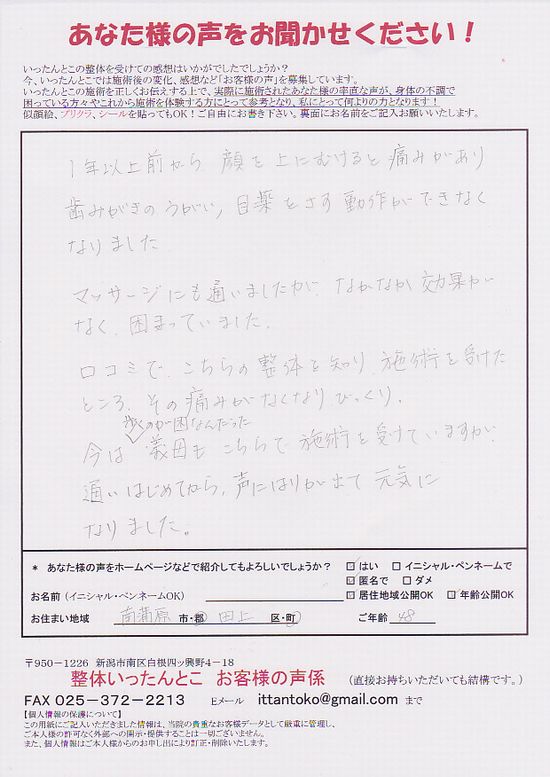 あなた様の声をお聞かせください！
いったんとこの整体を受けての感想はいかがでしたでしょうか？
今、いったんとこでは施術後の変化、感想など「お客様の声」を募集しています。
いったんとこの施術を正しくお伝えする上で、実際に施術されたあなた様の率直な声が、身体の不調で
困っている方々やこれから施術を体験する方にとって参考となり、私にとって何よりの力となります！
似顔絵、プリクラ、シールを貼ってもOK！ご自由にお書き下さい。裏面にお名前をご記入お願いいたします。
1年以上前から 顔を上にむけると痛みがあり
歯みがきのうがい、目薬をさす動作ができなく
なりました
マッサージにも通いましたが、なかなか効果が
なく、困まっていました。
口コミで、こちらの整体を知り、施術を受けた
ところ、その痛みがなくなり、びっくり。
歩くのが困なんだった
今は 義母も こちらで 施術を受けていますが、
通いはじめてから、声にはりが出て 元気に
なりました。
* あなた様の声をホームページなどで紹介してもよろしいでしょうか？ ☑はい □イニシャル・ペンネームで
☑匿名で □ダメ
お名前（イニシャル・ペンネームOK） ☑居住地域公開OK ☑年齢公開OK
お住まい地域 南蒲原 市・郡 田上 区・町 ご年齢 48
〒950-1226 新潟市南区白根四ッ興野4-18
整体いったんとこ お客様の声係 （直接お持ちいただいても結構です。）
FAX 025-372-2213 Eメール ittantoko@gmail.com まで
【個人情報の保護について】
この用紙にご記入いただきました情報は、当院の貴重なお客様データとして厳重に管理し、
ご本人様の許可なく外部への開示・提供することは一切ございません。
また、個人情報はご本人様からのお申し出により訂正・削除いたします。